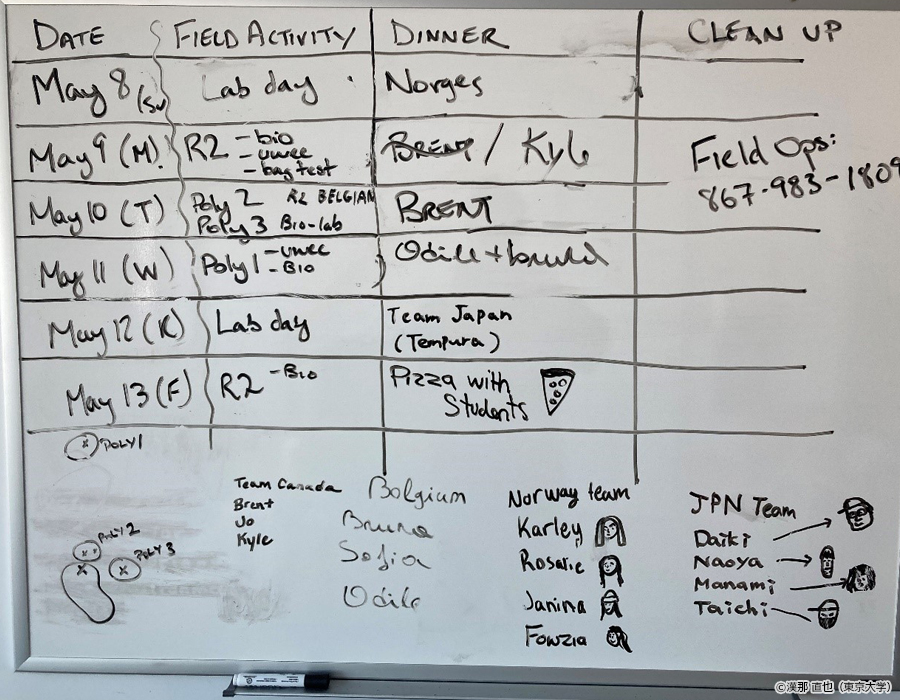 DATE FIELD ACTIVITY DINNER CLEAN UP
May 8 (Su) Lab day Norges
May 9 (M) R2 - bio - uwec - bag test BRENT / Kyle
Field Ops:
867-983-1809
May 10 (T) Poly 2 R2 BELGIAN BRENT
Poly 3 Bio-lab
May 11 (W) Poly 1 - uwec - Bio Odile +
May 12 (R) Lab day Team Japan
(Tempura)
May 13 (F) R2 - Bio Pizza with
Students
POLY1
POLY 2
POLY 3
Team Canada
Brent
Jo
Kyle
Belgium
Bruno
Sofia
Odile
Norway team
Karley
Rosalie
Janina
Fowzia
JPN Team
Daiki
Naoya
Manami
Taichi
©漢那 直也（東京大学）